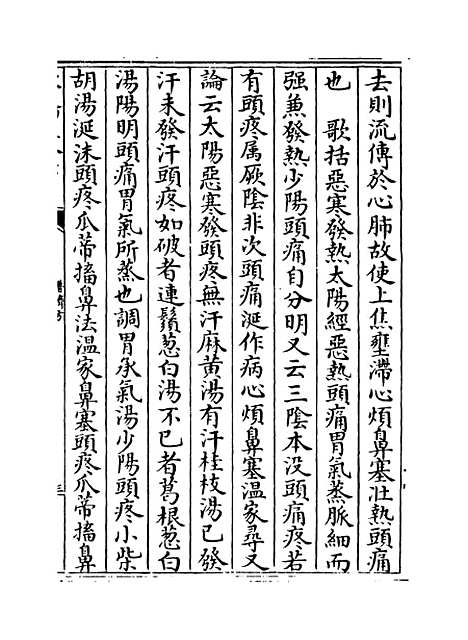 去則流傳於心肺故使上焦壅滯心煩鼻塞壯熱頭痛
也　歌括惡寒發熱太陽經惡熱頭痛胃氣蒸脈細而
强兼發熱少陽頭痛自分明又云三陰本没頭痛疼若
有頭疼属厥陰非次頭痛涎作病心煩鼻塞温家尋又
論云太陽惡寒發頭疼無汗麻黄湯有汗桂枝湯已發
汗未發汗頭疼如破者連鬚葱白湯不已者葛根葱白
湯陽明頭痛胃氣所蒸也調胃承氣湯少陽頭疼小柴
胡湯涎沫頭疼瓜蔕搐鼻法温家鼻塞頭疼瓜蔕搐鼻